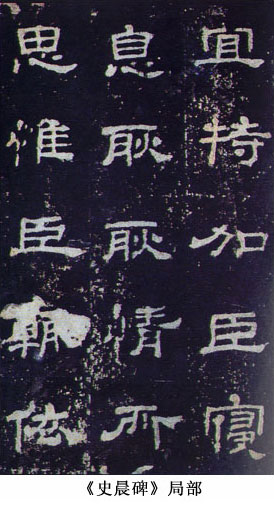 宜特加臣寑
息耿耿情所
思惟臣輒依
《史晨碑》局部